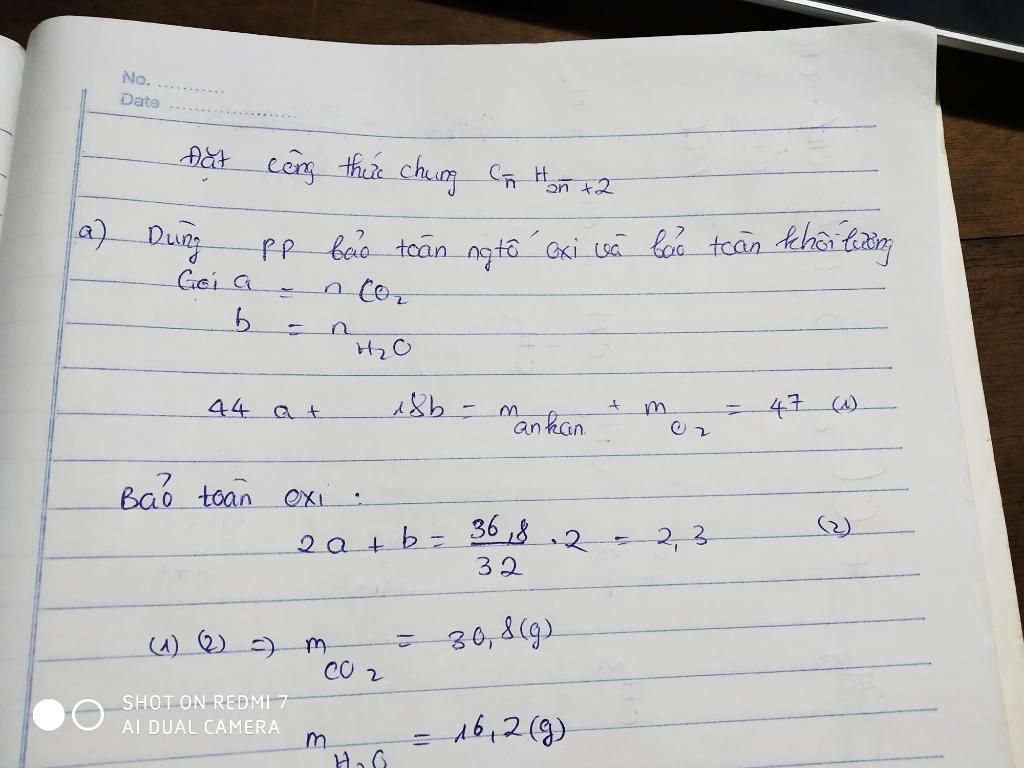 No. ..........
Date ....................
Đặt công thức chung Cn̄ H2n̄ +2
a) Dùng PP bảo toàn ngtố oxi và bảo toàn khối lượng
Gọi a = n CO2
b = n H2O
44 a + 18b = m ankan + m O2 = 47 (1)
Bảo toàn oxi :
2a + b = 36,8/32 . 2 = 2,3 (2)
(1) (2) => m CO2 = 30,8(g)
m H2O = 16,2(g)
SHOT ON REDMI 7
AI DUAL CAMERA